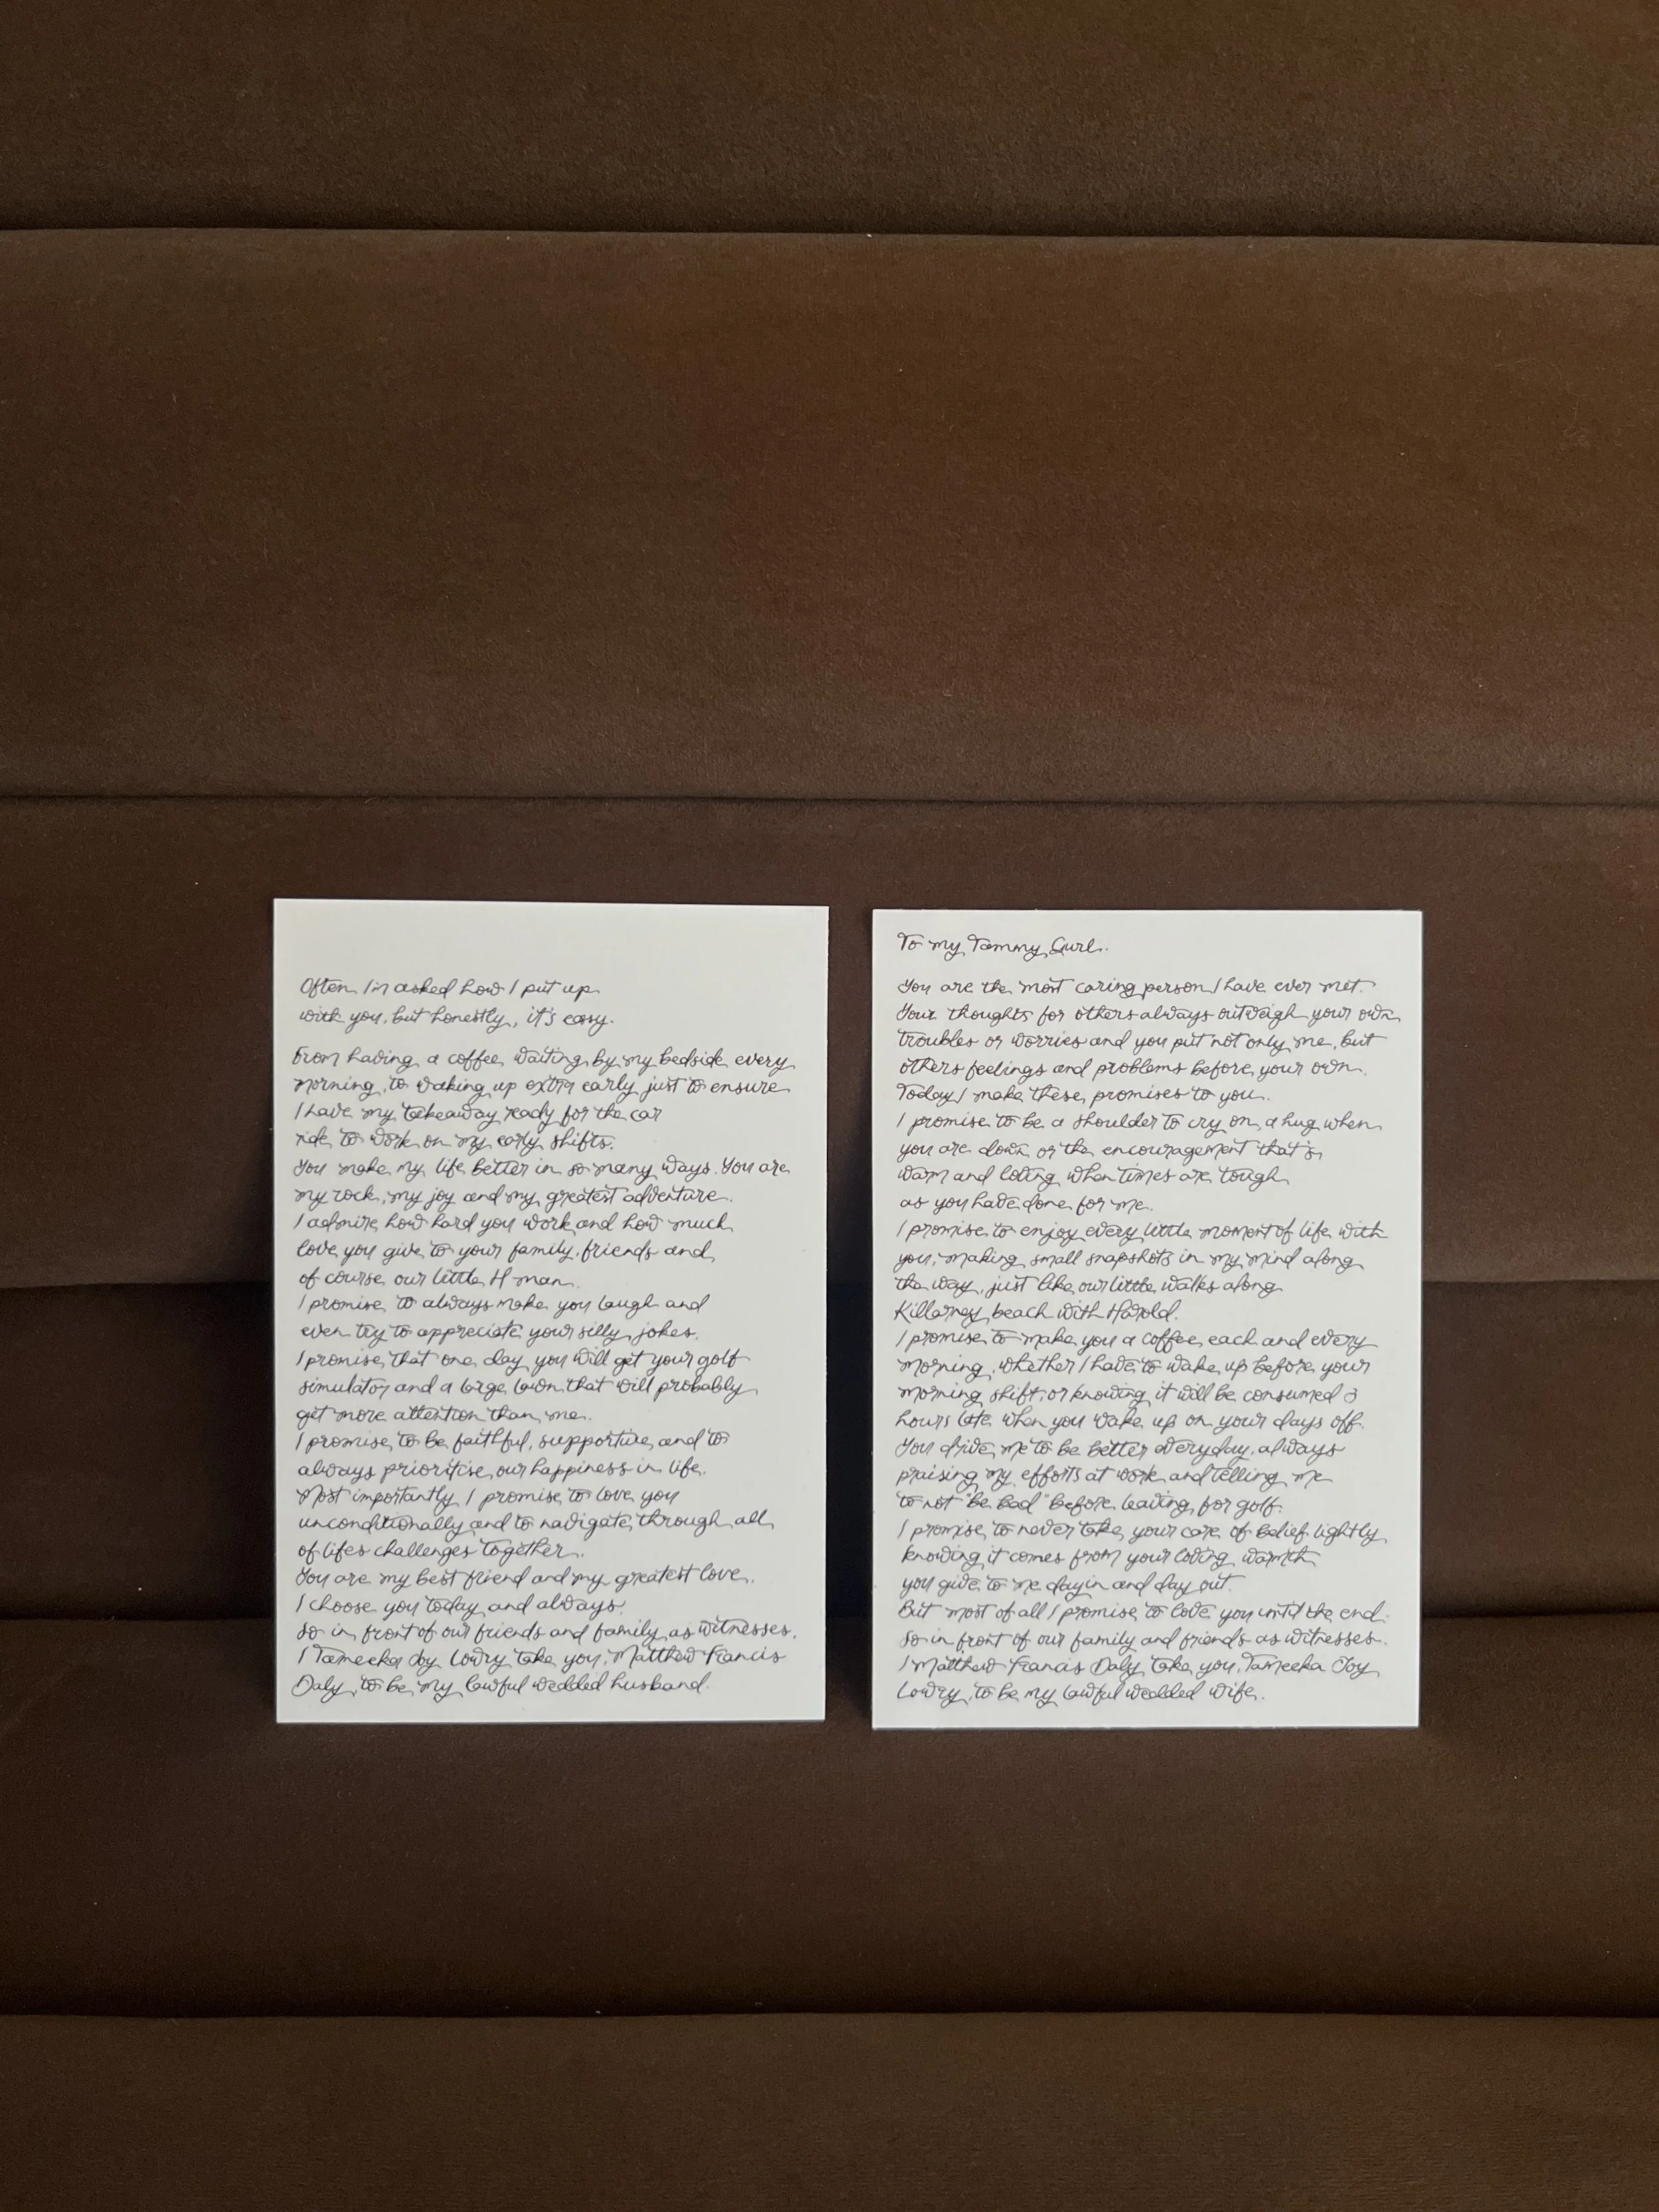 Often I'm asked how I put up
with you, but honestly, it's easy.
From having a coffee waiting by my bedside every
morning, to waking up extra early just to ensure
I have my takeaway ready for the car
ride to work on my early shifts.
You make my life better in so many ways. You are
my rock, my joy and my greatest adventure.
I admire how hard you work and how much
love you give to your family, friends and
of course our little H man.
I promise to always make you laugh and
even try to appreciate your silly jokes.
I promise that one day you will get your golf
simulator and a large lawn that will probably
get more attention than me.
I promise to be faithful, supportive and to
always prioritise our happiness in life.
Most importantly I promise to love you
unconditionally and to navigate through all
of lifes challenges together.
You are my best friend and my greatest love.
I choose you today and always.
So in front of our friends and family as witnesses.
I Tameeka Joy Lowry take you, Matthew Francis
Daly, to be my lawful wedded husband.
To my Tammy Gurl.
You are the most caring person I have ever met.
Your thoughts for others always outweigh your own
troubles or worries and you put not only me, but
others feelings and problems before your own.
Today I make these promises to you.
I promise to be a shoulder to cry on, a hug when
you are down or the encouragement that's
warm and loving when times are tough
as you have done for me.
I promise to enjoy every little moment of life with
you, making small snapshots in my mind along
the way, just like our little walks along
Killarney beach with Harold.
I promise to make you a coffee each and every
morning, whether I have to wake up before your
morning shift, or knowing it will be consumed 3
hours late when you wake up on your days off.
You drive me to be better everyday, always
praising my efforts at work and telling me
to not "be bad" before leaving for golf.
I promise to never take your care of belief lightly
knowing it comes from your loving warmth
you give to me day in and day out.
But most of all I promise to love you until the end.
So in front of our family and friends as witnesses.
I Matthew Francis Daly take you, Tameeka Joy
Lowry, to be my lawful wedded wife.